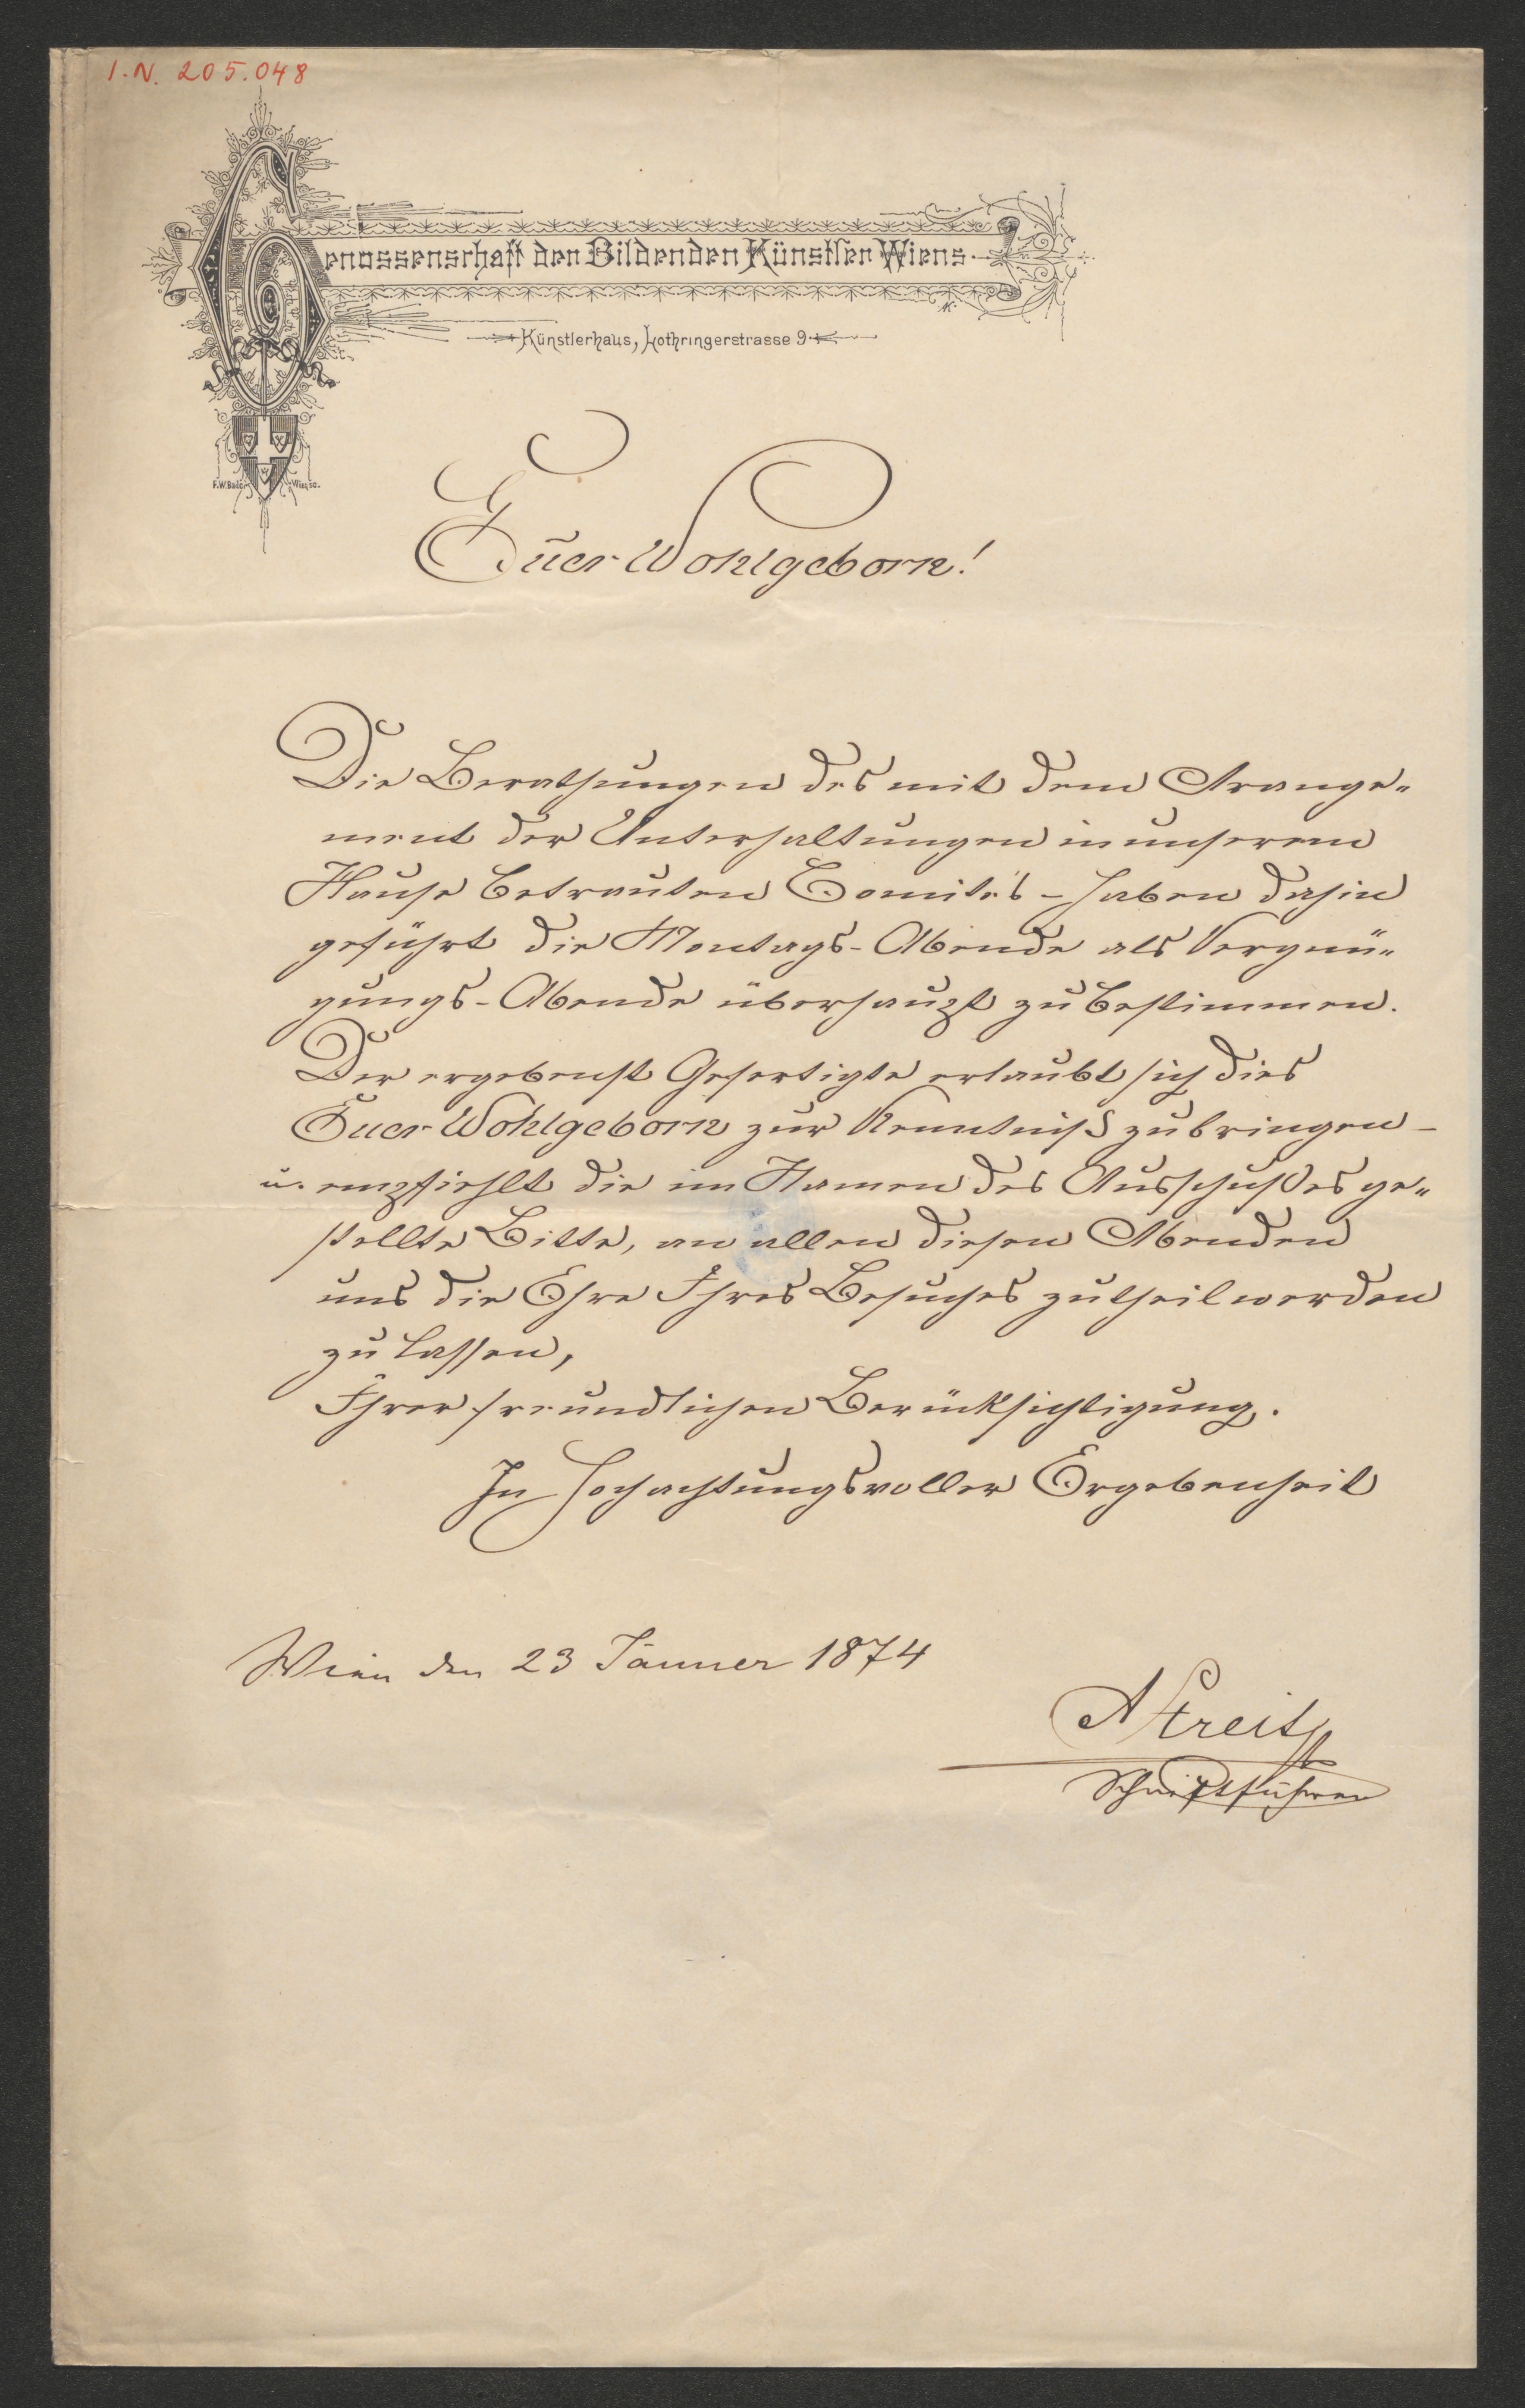 I.N. 205.048
Genossenschaft der Bildenden Künstler Wiens.
Künstlerhaus, Lothringerstrasse 9
F.W. Bader Wien sc.
Euer Wohlgeborn!
Die Berathungen des mit dem Arange„
ment der Unterhaltungen in unserem
Hause betrauten Comité's – haben dahin
geführt die Montags-Abende als Vergnü„
gungs-Abende überhaupt zu bestimmen.
Der ergebenst Gefertigte erlaubt sich dies
Euer Wohlgeborn zur Kenntniß zu bringen –
u. empfiehlt die im Namen des Ausschußes ge„
stellte Bitte, an allen diesen Abenden
uns die Ehre Ihres Besuches zutheil werden
zu lassen,
Ihrer freundlichen Berücksichtigung.
In hochachtungsvoller Ergebenheit
Wien den 23 Jänner 1874
A Streit
Schriftführer